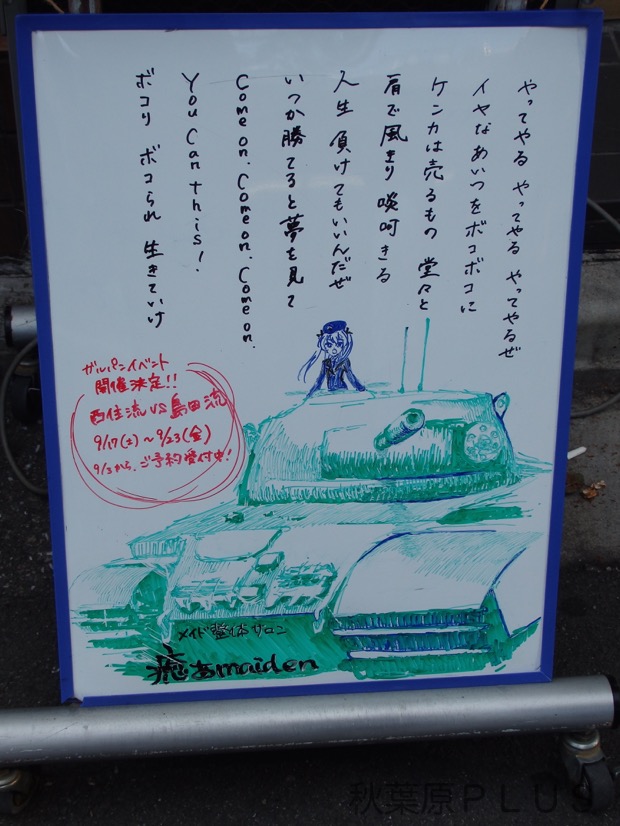 やってやる やってやる やってやるぜ
イヤなあいつをボコボコに
ケンカは売るもの 堂々と
肩で風きり 啖呵きる
人生 負けてもいいんだぜ
いつか勝てると夢を見て
Come on. Come on. Come on.
You Can this!
ボコリ ボコられ 生きていけ
ガルパンイベント
開催決定!!
西住流 VS 島田流
9/17(土)～9/23(金)
9/3から、ご予約受付中!
メイド整体サロン
癒あmaiden
秋葉原PLUS